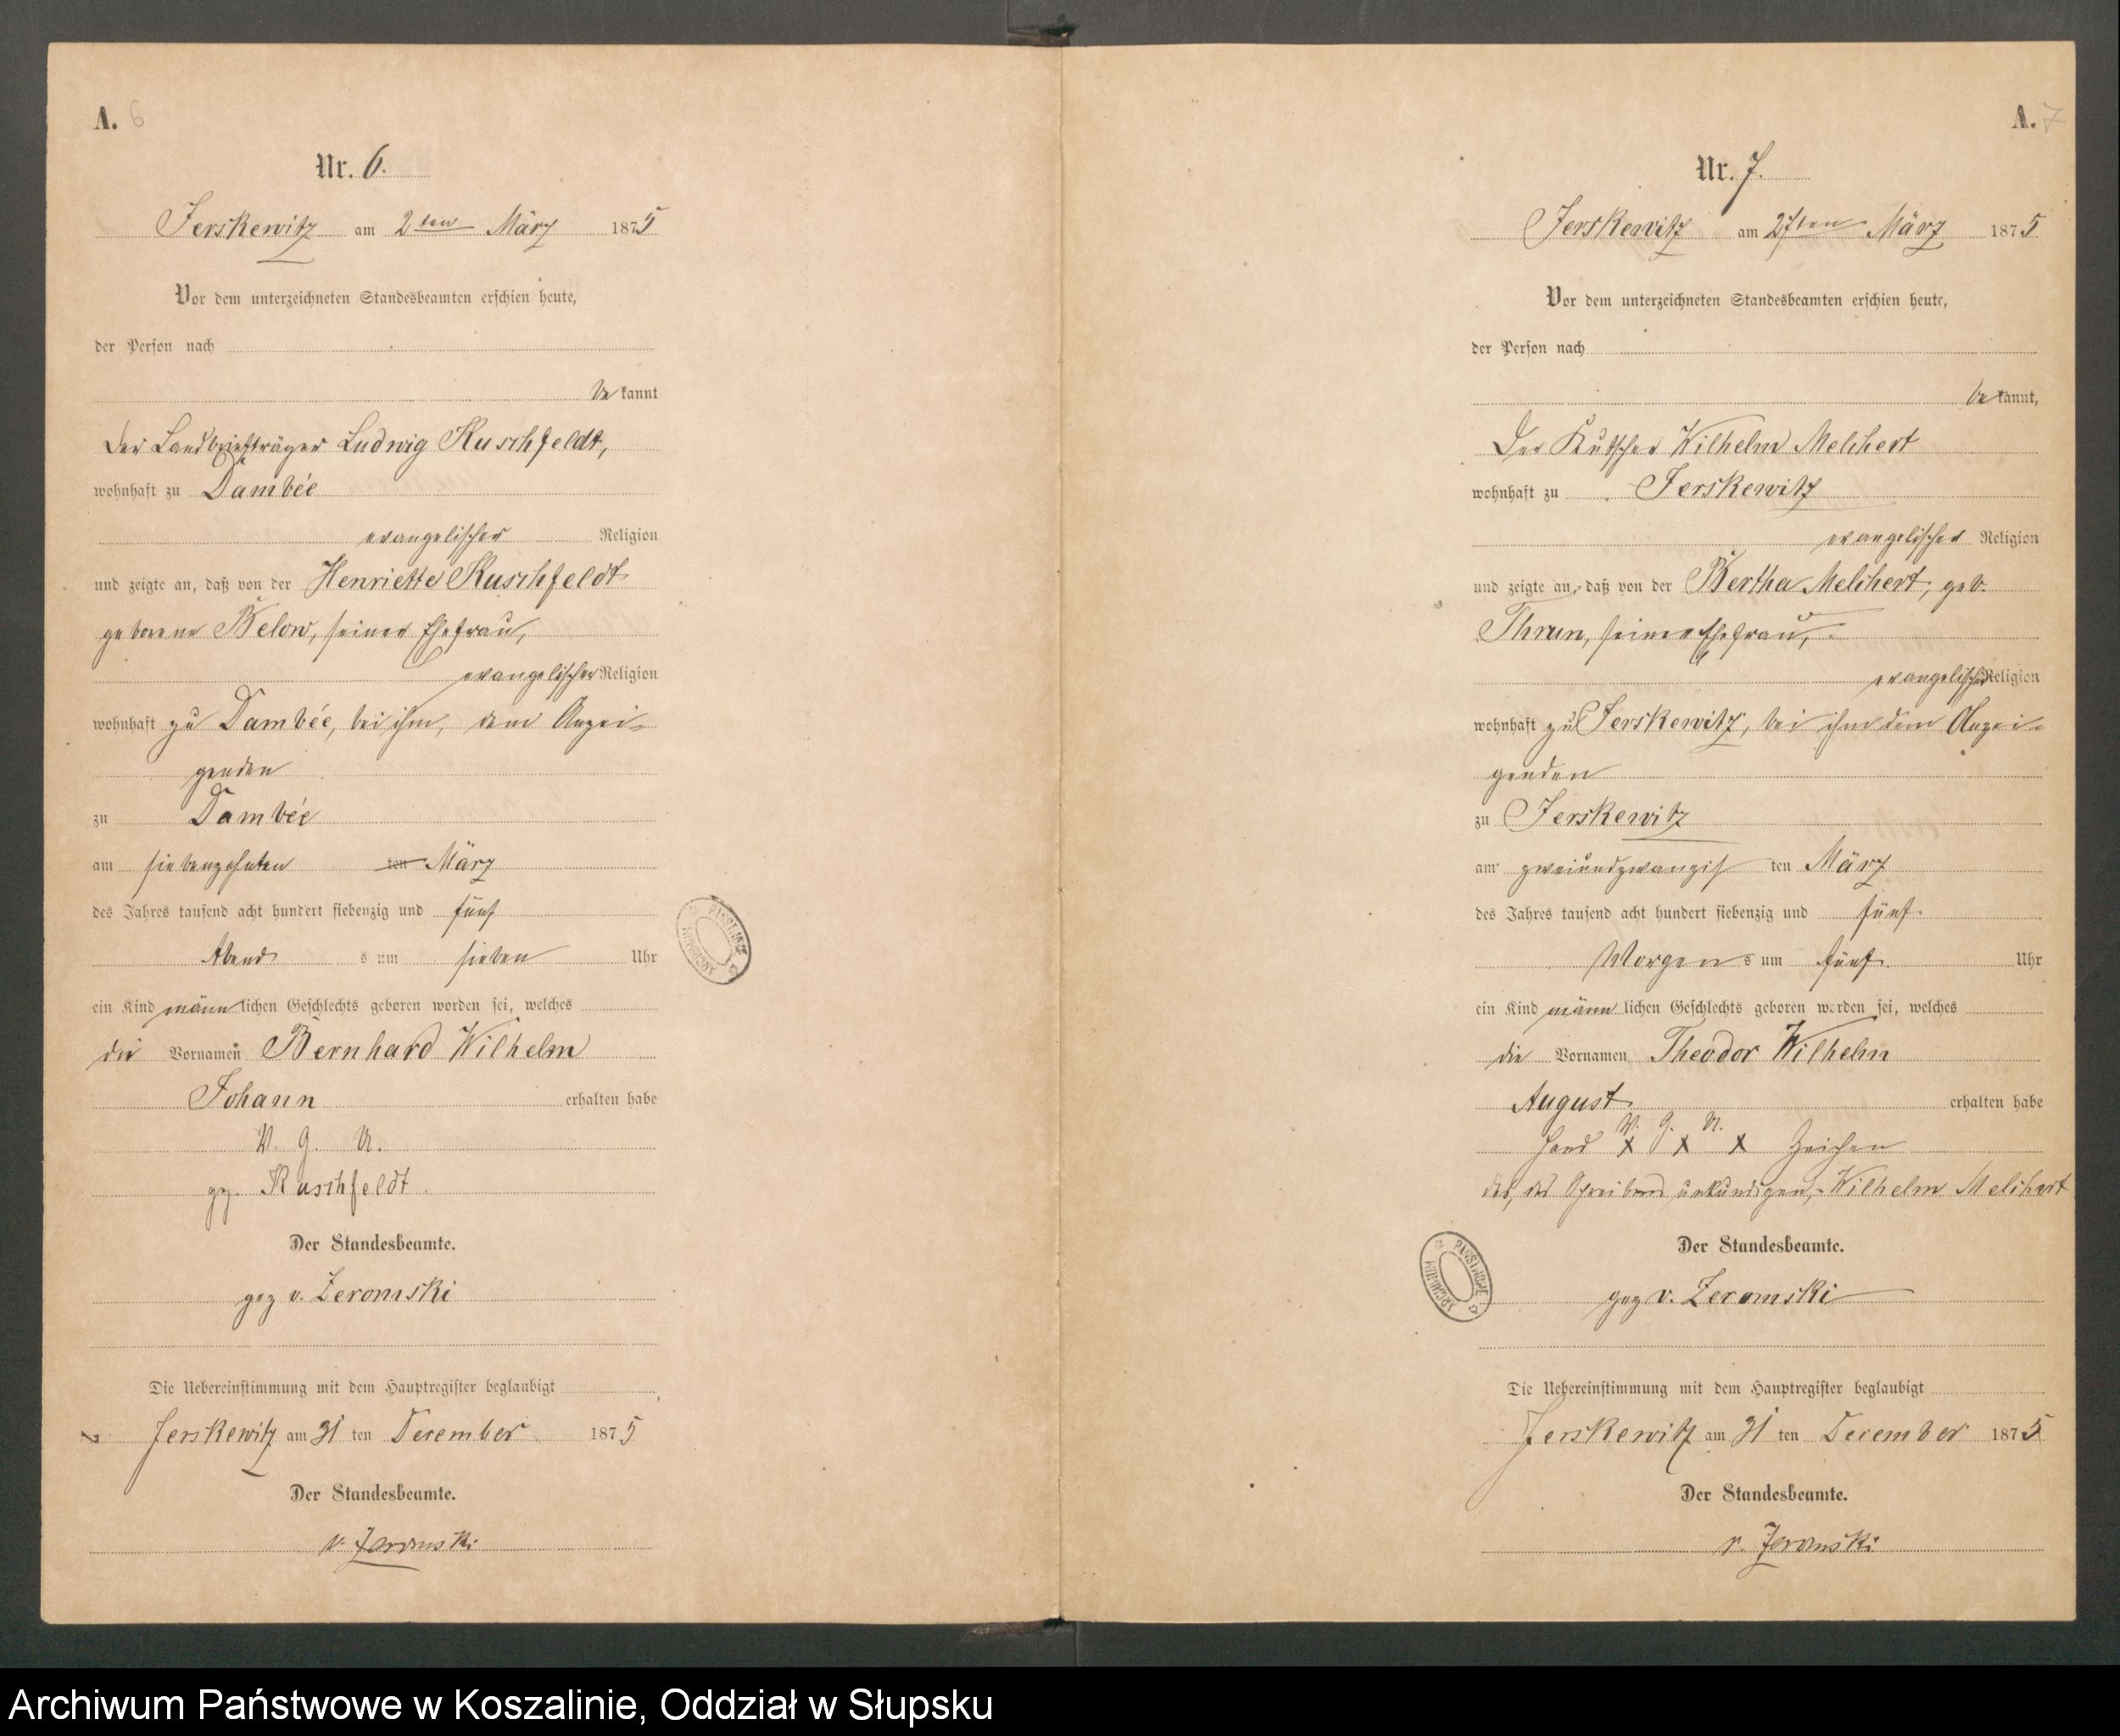 A. 6
Nr. 6.
Jerskewitz am 2ten März 1875
Vor dem unterzeichneten Standesbeamten erschien heute,
der Person nach
be kannt
Der Landbriefträger Ludwig Kuschfeldt,
wohnhaft zu Dambée
evangelischer Religion
und zeigte an, daß von der Henriette Kuschfeldt
geborene Below, seiner Ehefrau,
evangelischer Religion
wohnhaft zu Dambée, bei ihm, dem Anzei-
genden
zu Dambée
am siebenzehnten ten März
des Jahres tausend acht hundert siebenzig und fünf
Abend s um sieben Uhr
ein Kind männ lichen Geschlechts geboren worden sei, welches
die Vornamen Bernhard Wilhelm
Johann erhalten habe
V. g. U.
gz. Kuschfeldt.
Der Standesbeamte.
gez v. Zeromski
Die Uebereinstimmung mit dem Hauptregister beglaubigt
Jerskewitz am 31 ten December 1875
Der Standesbeamte.
v. Zeromski
ARCHIWUM PAŃSTWOWE
A. 7
Nr. 7.
Jerskewitz am 27ten März 1875
Vor dem unterzeichneten Standesbeamten erschien heute,
der Person nach
be kannt,
Der Kutscher Wilhelm Melchert
wohnhaft zu Jerskewitz
evangelischer Religion
und zeigte an, daß von der Bertha Melchert, geb.
Thrun, seiner Ehefrau,
evangelischer Religion
wohnhaft zu Jerskewitz, bei ihm dem Anzei-
genden
zu Jerskewitz
am zweiundzwanzigs ten März
des Jahres tausend acht hundert siebenzig und fünf
Morgen s um fünf Uhr
ein Kind männ lichen Geschlechts geboren worden sei, welches
die Vornamen Theodor Wilhelm
August erhalten habe
V. g. U.
Hand X X X Zeichen
des, des Schreibens unkundigen, Wilhelm Melchert
Der Standesbeamte.
gez v. Zeromski
Die Uebereinstimmung mit dem Hauptregister beglaubigt
Jerskewitz am 31 ten December 1875
Der Standesbeamte.
v. Zeromski
ARCHIWUM PAŃSTWOWE
Archiwum Państwowe w Koszalinie, Oddział w Słupsku